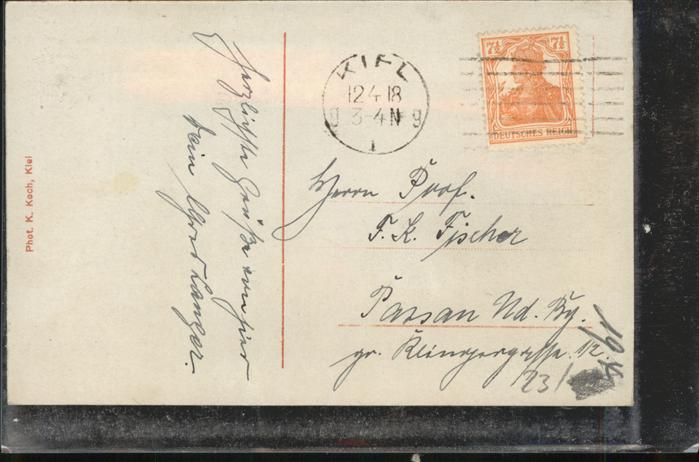 Herzlichste Grüße von hier
Dein
KIEL
12.4.18
3-4 N
g g
1
7½ 7½
DEUTSCHES REICH
Herrn Prof.
F. K. Fischer
Passau Nd. By.
gr. Klingergasse 12.
23/
Phot. K. Koch, Kiel